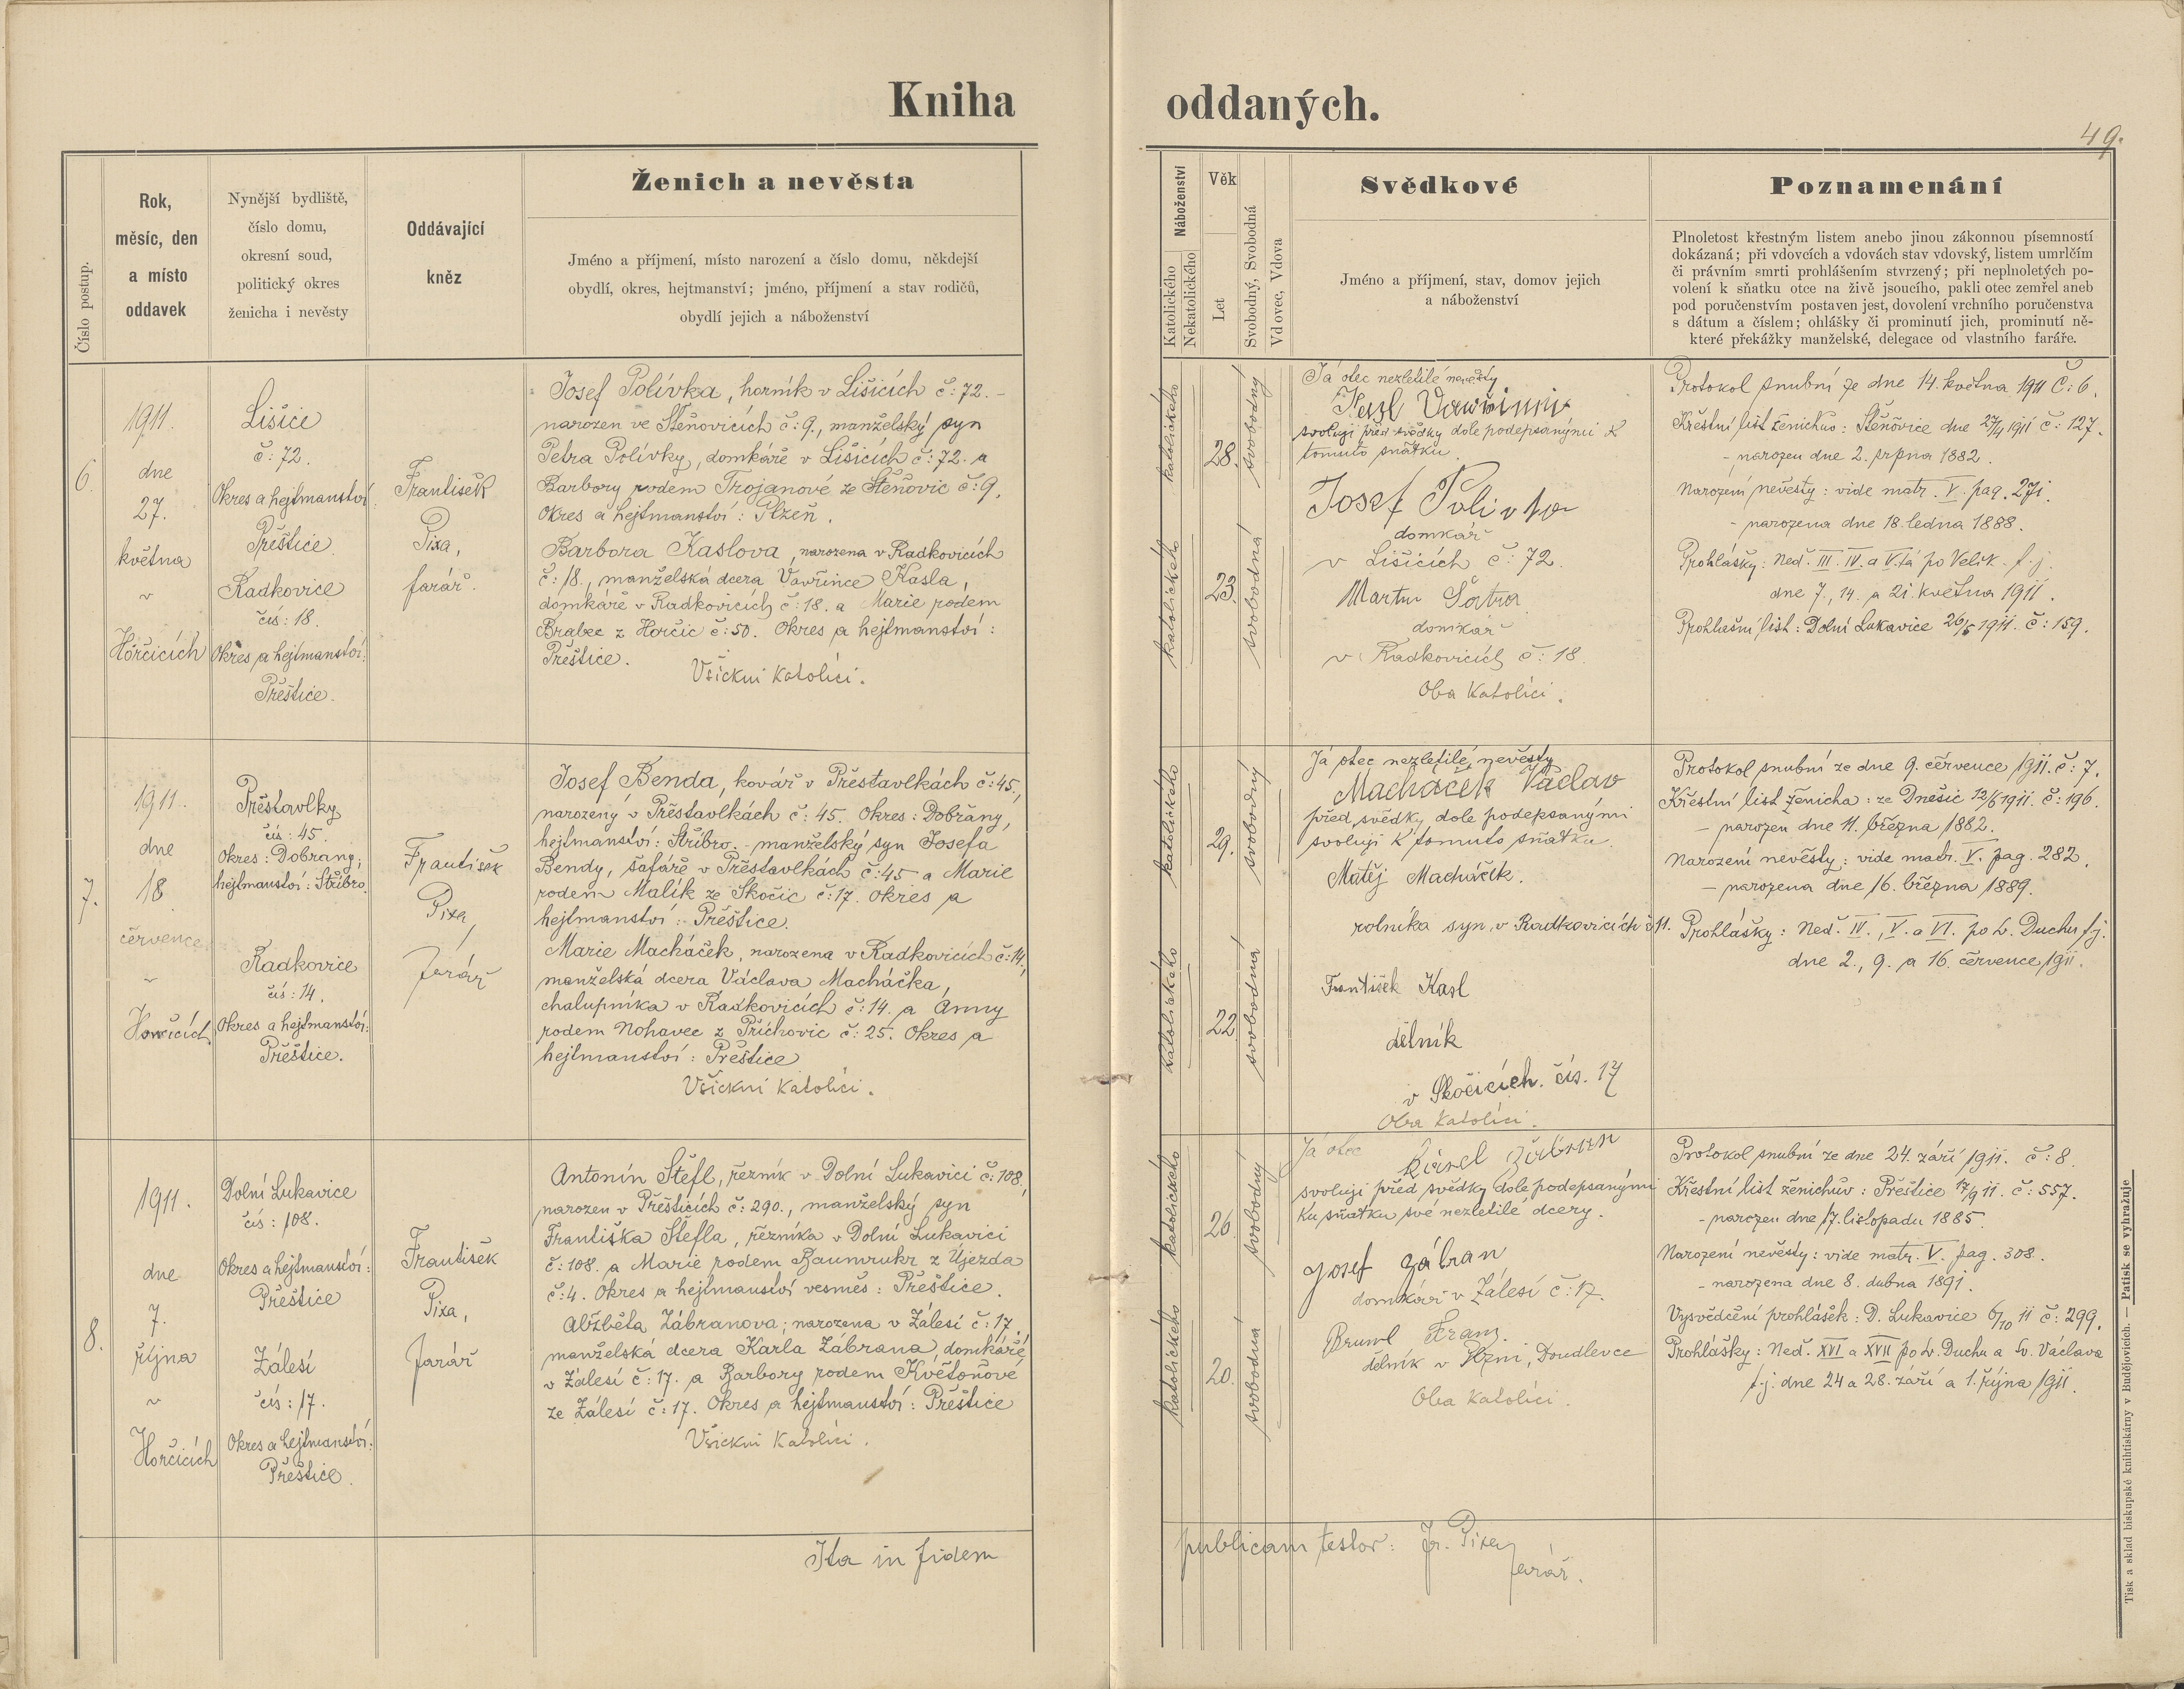 Kniha oddaných.
49.
Číslo postup.
Rok,
měsíc, den
a místo
oddavek
Nynější bydliště,
číslo domu,
okresní soud,
politický okres
ženicha i nevěsty
Oddávající
kněz
Ženich a nevěsta
Jméno a příjmení, místo narození a číslo domu, někdejší
obydlí, okres, hejtmanství; jméno, příjmení a stav rodičů,
obydlí jejich a náboženství
Náboženství
Katolického
Nekatolického
Věk
Let
Svobodný, Svobodná
Vdovec, Vdova
Svědkové
Jméno a příjmení, stav, domov jejich
a náboženství
Poznamenání
Plnoletost křestným listem anebo jinou zákonnou písemností
dokázaná; při vdovcích a vdovách stav vdovský, listem umrlčím
či právním smrti prohlášením stvrzený; při neplnoletých po-
volení k sňatku otce na živě jsoucího, pakli otec zemřel aneb
pod poručenstvím postaven jest, dovolení vrchního poručenstva
s dátum a číslem; ohlášky či prominutí jich, prominutí ně-
které překážky manželské, delegace od vlastního faráře.
6.
1911.
dne
27.
května
v
Horčicích
Lišice
č: 72.
Okres a hejtmanství
Přeštice.
Radkovice
čís: 18.
Okres a hejtmanství:
Přeštice.
František
Pixa,
farář.
Josef Polívka, horník v Lišicích č: 72. -
narozen ve Štěnovicích č: 9., manželský syn
Petra Polívky, domkáře v Lišicích č: 72. a
Barbory rodem Trojanové ze Štěnovic č: 9.
Okres a hejtmanství: Plzeň.
Barbora Kaslova, narozena v Radkovicích
č: 18., manželská dcera Vavřince Kasla,
domkáře v Radkovicích č: 18. a Marie rodem
Brabec z Horčic č: 50. Okres a hejtmanství:
Přeštice.
Všickni katolíci.
katolického
28.
svobodný
katolického
23.
svobodná
Já otec nezletilé nevěsty
svoluji před svědky dole podepsanými k
tomuto sňatku.
Josef Polivka
domkář
v Lišicích č: 72.
Martin Šatra
domkář
v Radkovicích č: 18.
Oba katolíci.
Protokol snubní ze dne 14. května 1911 č: 6.
Křestní list ženichův: Štěnovice dne 27/4 1911 č: 127.
- narozen dne 2. srpna 1882.
Narození nevěsty: vide matr. V. pag. 271.
- narozena dne 18. ledna 1888.
Prohlášky: Ned. III. IV. a V.tá po Velik. t. j.
dne 7., 14. a 21. května 1911.
Prohlašní list: Dolní Lukavice 26/5 1911. č: 159.
7.
1911.
dne
18.
července
v
Horčicích
Přestavlky
čís: 45.
Okres: Dobřany;
hejtmanství: Stříbro.
Radkovice
čís: 14.
Okres a hejtmanství:
Přeštice.
František
Pixa,
farář
Josef Benda, kovář v Přestavlkách č: 45.,
narozený v Přestavlkách č: 45. Okres: Dobřany,
hejtmanství: Stříbro. - manželský syn Josefa
Bendy, šafáře v Přestavlkách č: 45 a Marie
rodem Malík ze Skočic č: 17. Okres a
hejtmanství: Přeštice.
Marie Macháček, narozena v Radkovicích č: 14,
manželská dcera Václava Macháčka,
chalupníka v Radkovicích č: 14. a Anny
rodem Nohavec z Příchovic č: 25. Okres a
hejtmanství: Přeštice
Všickni katolíci.
katolického
29.
svobodný
katolického
22.
svobodná
Já otec nezletilé nevěsty
Macháček Václav
před svědky dole podepsanými
svoluji k tomuto sňatku.
Matěj Macháček.
rolníka syn, v Radkovicích č 11.
František Kasl
dělník
v Skočicích. čís. 17
Oba katolíci.
Protokol snubní ze dne 9. července 1911. č: 7.
Křestní list ženicha: ze Dnešic 12/6 1911. č: 196.
- narozen dne 11. března 1882.
Narození nevěsty: vide matr. V. pag. 282.
- narozena dne 16. března 1889.
Prohlášky: Ned. IV., V. a VI. po sv. Duchu t. j.
dne 2., 9. a 16. července 1911.
8.
1911.
dne
7.
října
v
Horčicích
Dolní Lukavice
čís: 108.
Okres a hejtmanství:
Přeštice
Zálesí
čís: 17.
Okres a hejtmanství:
Přeštice.
František
Pixa,
farář
Antonín Štefl, řezník v Dolní Lukavici č: 108,
narozen v Přešticích č: 290., manželský syn
Františka Štefla, řezníka v Dolní Lukavici
č: 108. a Marie rodem Baumrukr z Újezda
č: 4. Okres a hejtmanství vesměs: Přeštice.
Alžběta Zábranova; narozena v Zálesí č: 17,
manželská dcera Karla Zábrana, domkáře
v Zálesí č: 17. a Barbory rodem Květoňové
ze Zálesí č: 17. Okres a hejtmanství: Přeštice
Všickni katolíci.
katolického
26.
svobodný
katolického
20.
svobodná
Já otec
Karel Zábran
svoluji před svědky dole podepsanými
ku sňatku své nezletilé dcery.
Josef Zábran
domkář v Zálesí č: 17.
Bruml Franz.
dělník v Plzni, Doudlevce
Oba katolíci.
Protokol snubní ze dne 24. září 1911. č: 8.
Křestní list ženichův: Přeštice 17/9 11. č: 557.
- narozen dne 17. listopadu 1885.
Narození nevěsty: vide matr. V. pag. 308.
- narozena dne 8. dubna 1891.
Vysvědčení prohlášek: D. Lukavice 6/10 11 č: 299.
Prohlášky: Ned. XVI a XVII po sv. Duchu a sv. Václava
t. j. dne 24 a 28. září a 1. října 1911.
Ita in fidem publicam testor: Fr. Pixa
farář.
Tisk a sklad biskupské knihtiskárny v Budějovicích. — Patisk se vyhražuje